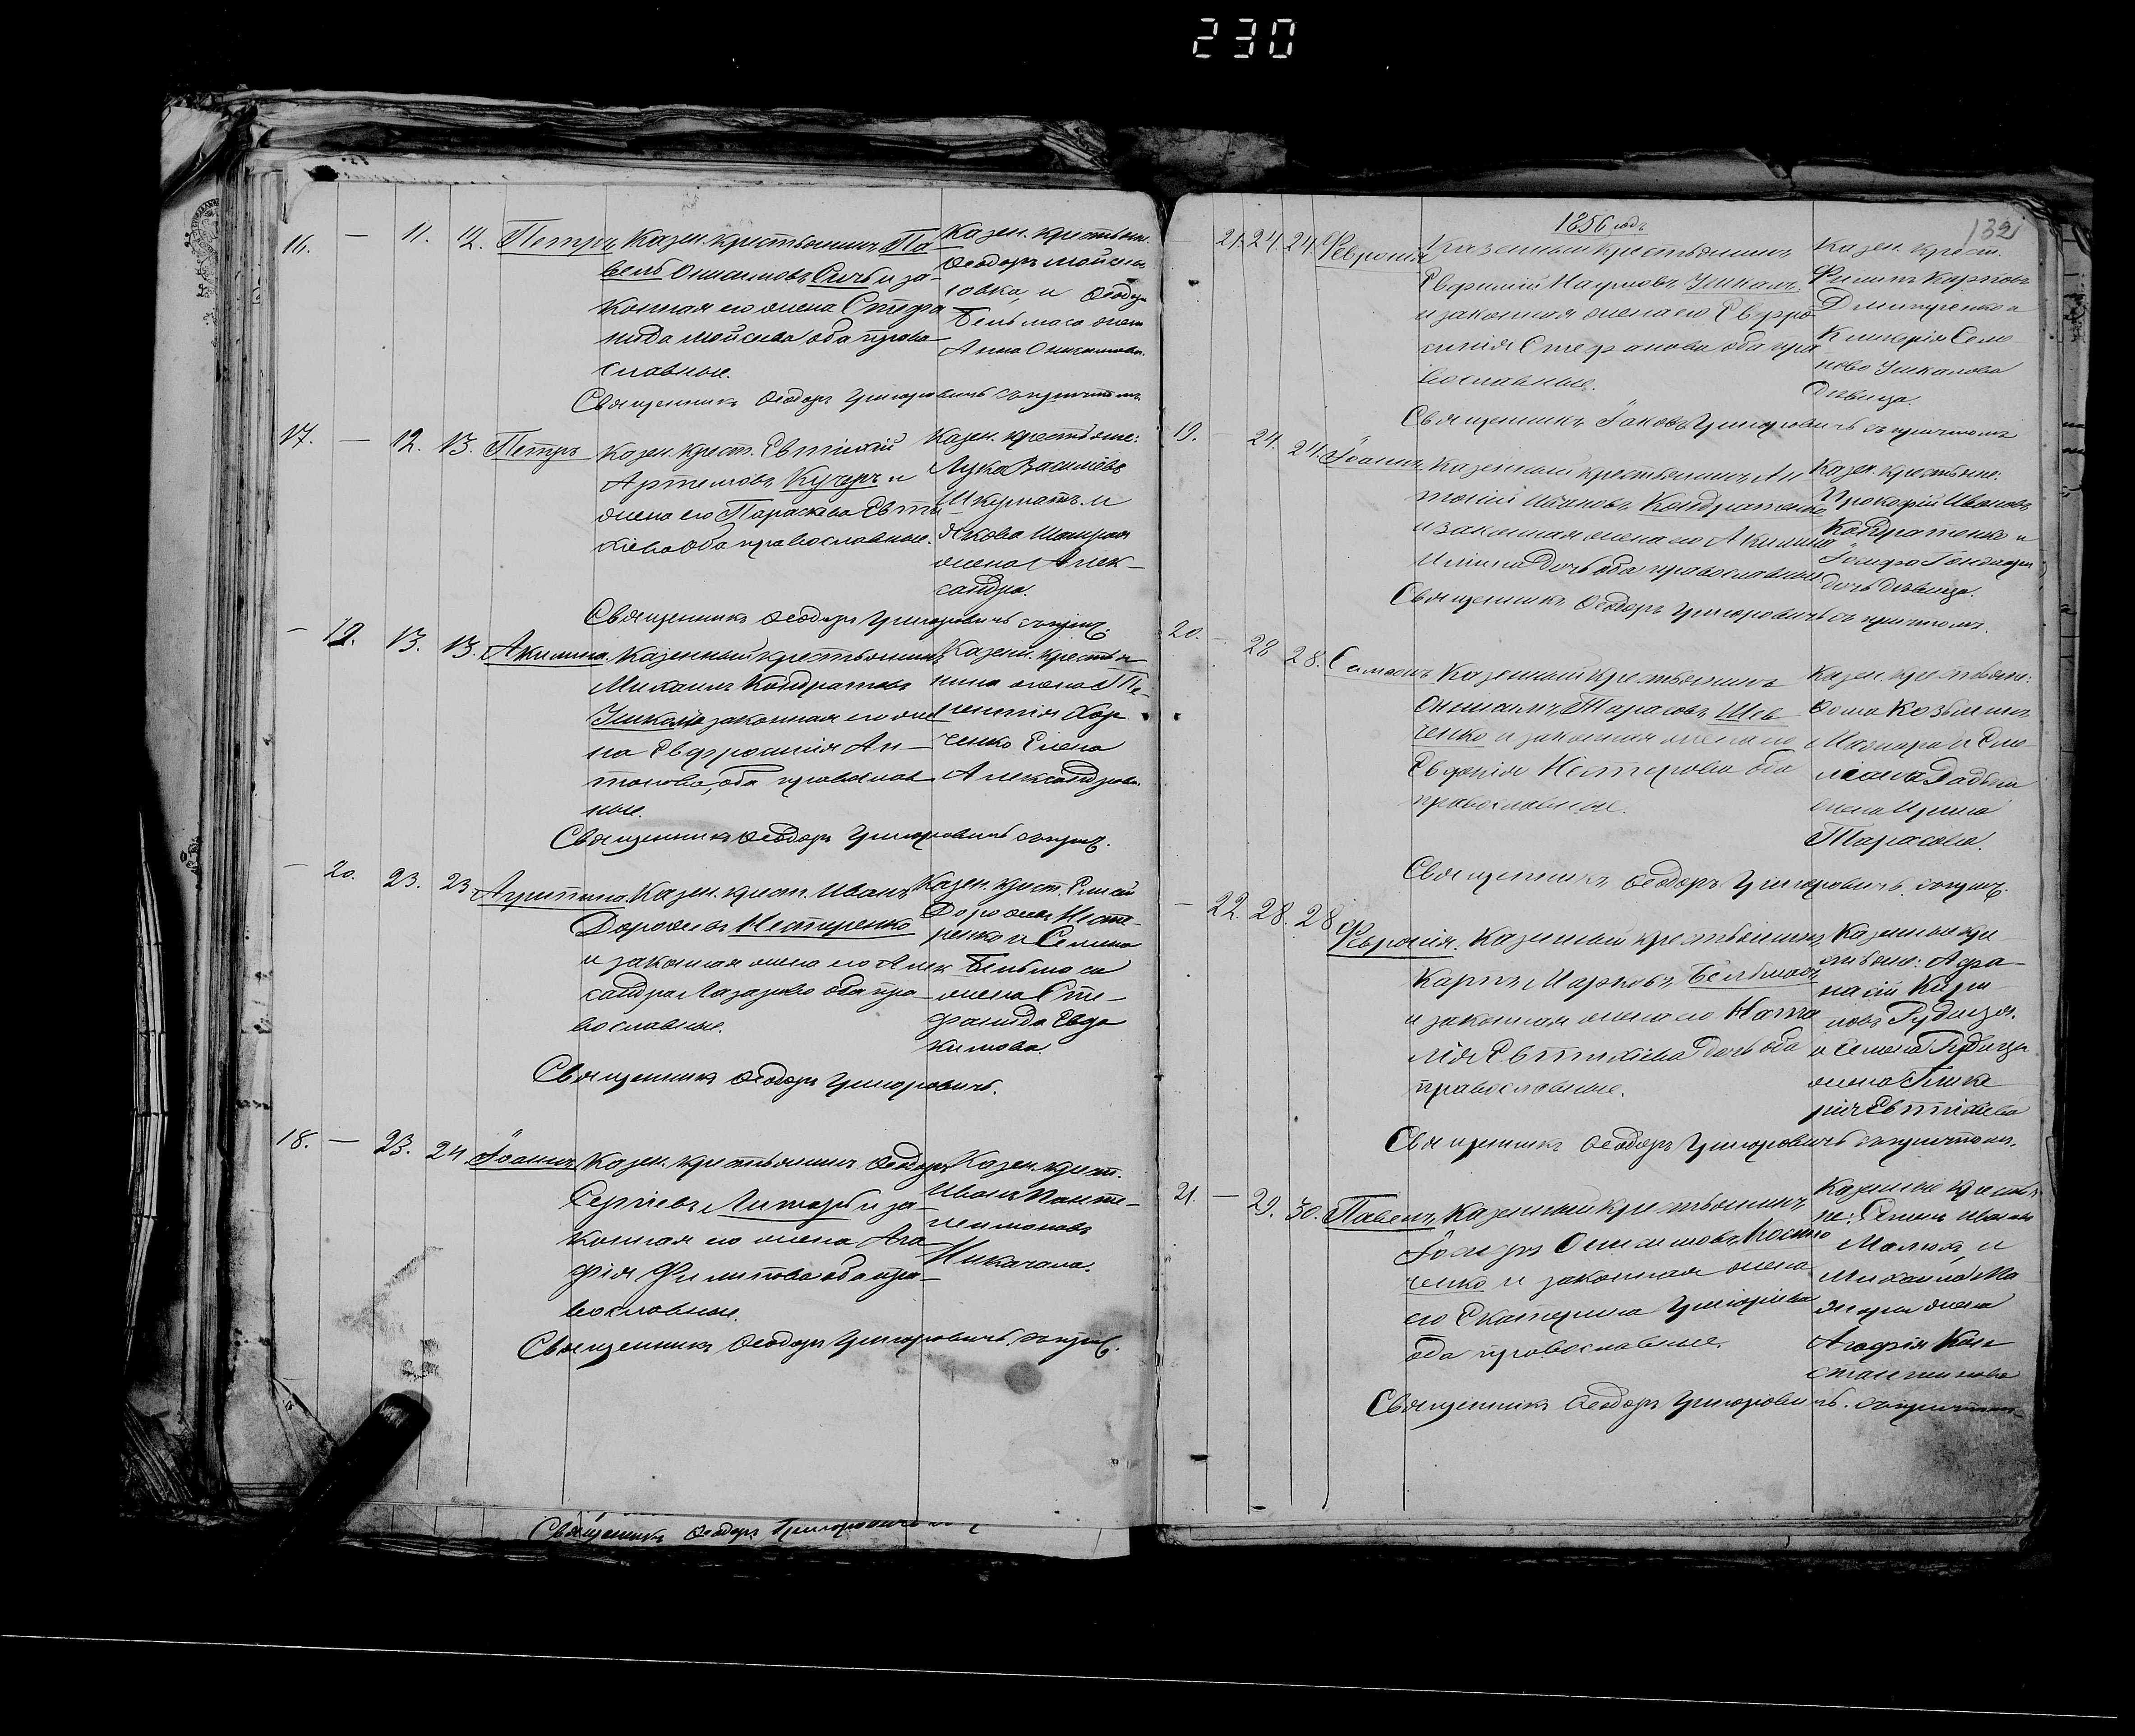 230
16. — 11. 12. Петръ Казен. крестьянинъ Па
велъ Онисимовъ Сичь и за-
конная его жена Стефа
нида Мойсеева оба право
славные.
Казен. крестьян.
Ѳеодоръ Мойсеевъ
и Ѳеодора
Бельмаса жена
Анна Онисимова.
Священникъ Ѳеодоръ Григоровичь съ причтомъ
17. — 12. 13. Петръ Казен. крест. Евтихій
Артемовъ Кучеръ и
жена его Параскева Евти
хіева оба православные.
Казен. крестьяне:
Лука Василіевъ
Шкуратъ и
Якова
жена Алек-
сандра.
Священникъ Ѳеодоръ Григоровичь съ прич.
— 19. 13. 13. Акилина. Казенный крестьянинъ
Михаилъ Кондратовъ
законная его же
на Евфросинія Ан-
тонова, оба православ
ные.
Казен. крестья
нина жена
Хор
ченко Елена
Александрова.
Священникъ Ѳеодоръ Григоровичь съ прич.
— 20. 23. 23. Агрипина. Казен. крест. Иванъ
Дороѳеевъ Нестеренко
и законная жена его Алек
сандра Лазарева оба пра-
вославные.
Казен. крест. Елисей
Дороѳеевъ Несте-
ренко и Семена
Бельмаса
жена Сте-
фанида Евдо
кимова.
Священникъ Ѳеодоръ Григоровичь.
18. — 23. 24. Іоаннъ Казен. крестьянинъ Ѳеодоръ
Сергіевъ Литарь и за-
конная его жена Ага
фія Филипова оба пра-
вославные.
Казен. крест.
Иванъ Панте-
леимоновъ
Никачала.
Священникъ Ѳеодоръ Григоровичь съ прич.
Священникъ Ѳеодоръ Григоровичь
1856 годъ
132
21. 24. 24. Февронія Казенный крестьянинъ
Евфимій Наумовъ
и законная жена его Евфро-
синія Стефанова оба пра
вославные.
Казен. крест.
Филипъ Карповъ
Дмитренко и
Гликерія Семе
нова
дѣвица.
Священникъ Іаковъ Григоровичь съ причтомъ
19. — 24. 24. Іоаннъ Казенный крестьянинъ Ан
тоній Ивановъ Кондратенко
и законная жена его Акилина
Иліина дочь оба православные
Казен. крестьяне:
Прокофій Ивановъ
Кондратенко и
Іосифа
дочь дѣвица.
Священникъ Ѳеодоръ Григоровичь съ причтомъ.
20. — 28 28. Симеонъ Казенный крестьянинъ
Онисимъ Тарасовъ Шев
ченко и законная жена его
Евфимія Нестерова оба
православные.
Казен. крестьяне:
Ѳома Козьминъ
жена Ирина
Тарасова.
Священникъ Ѳеодоръ Григоровичь съ прич.
— 22. 28. 28. Февронія. Казенный крестьянинъ
Карпъ Марковъ Бельмасъ
и законная жена его Ната
лія Евтихіева дочь оба
православные.
Казенные кре
стьяне: Афа-
насій Кири
ловъ
и Семена
жена Глике
рія Евтихіева
Священникъ Ѳеодоръ Григоровичь съ причтомъ.
21. — 29. 30. Павелъ Казенный крестьянинъ
Іосифъ Онисимовъ
ченко и законная жена
его Екатерина Григоріева
оба православные.
Казенные крестья
не: Семенъ Ивановъ
и
Михаила Ма
жары жена
Агафія Кон
стантинова
Священникъ Ѳеодоръ Григоровичь. съ причтомъ